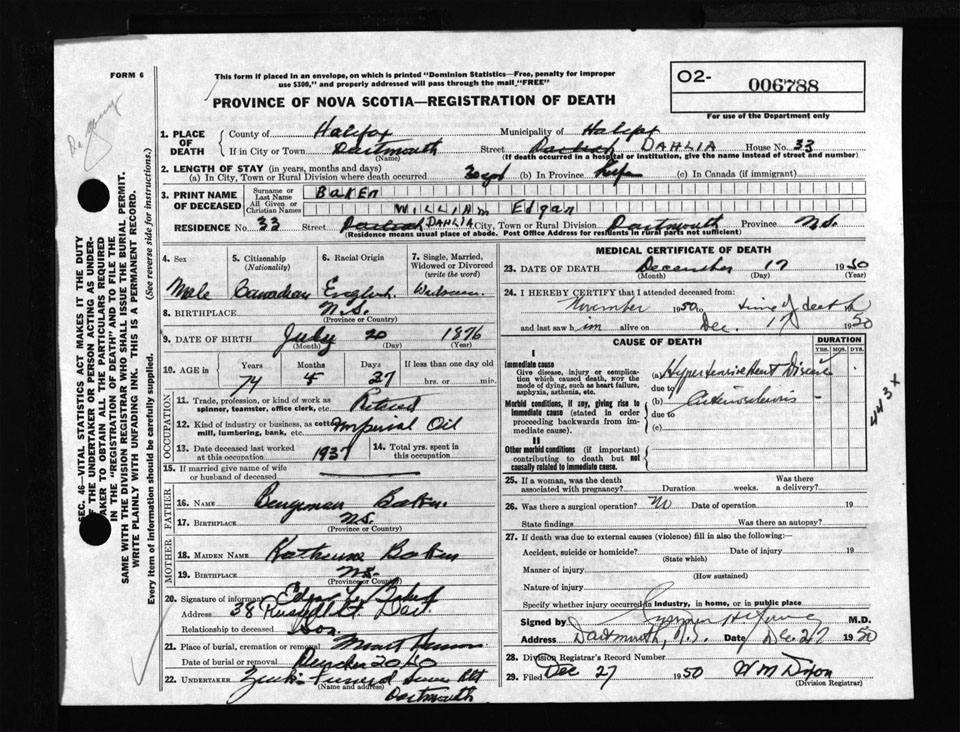 FORM 6
This form if placed in an envelope, on which is printed "Dominion Statistics—Free, penalty for improper
use $300", and properly addressed will pass through the mail "FREE"
O2- 006788
For use of the Department only
PROVINCE OF NOVA SCOTIA—REGISTRATION OF DEATH
SEC. 46—VITAL STATISTICS ACT MAKES IT THE DUTY
OF THE UNDERTAKER OR PERSON ACTING AS UNDER-
TAKER TO OBTAIN ALL THE PARTICULARS REQUIRED
IN THE "REGISTRATION OF DEATH" AND TO FILE THE
SAME WITH THE DIVISION REGISTRAR WHO SHALL ISSUE THE BURIAL PERMIT.
WRITE PLAINLY WITH UNFADING INK. THIS IS A PERMANENT RECORD.
Every item of information should be carefully supplied. (See reverse side for instructions.)
1. PLACE OF DEATH County of Halifax Municipality of Halifax
If in City or Town Dartmouth Street DAHLIA House No. 33
(Name) (If death occurred in a hospital or institution, give the name instead of street and number)
2. LENGTH OF STAY (in years, months and days)
(a) In City, Town or Rural Division where death occurred (b) In Province life (c) In Canada (if immigrant)
3. PRINT NAME OF DECEASED Surname or Last Name BAKER
All Given or Christian Names WILLIAM Edgar
RESIDENCE No. 33 Street DAHLIA City, Town or Rural Division Dartmouth Province N.S.
(Residence means usual place of abode. Post Office Address for residents in rural parts not sufficient)
4. Sex 5. Citizenship (Nationality) 6. Racial Origin 7. Single, Married, Widowed or Divorced (write the word)
Male Canadian English Widower
8. BIRTHPLACE N.S.
(Province or Country)
9. DATE OF BIRTH July 20 1876
(Month) (Day) (Year)
10. AGE in Years Months Days If less than one day old
74 4 27 hrs. or min.
OCCUPATION
11. Trade, profession, or kind of work as spinner, teamster, office clerk, etc. Retired
12. Kind of industry or business, as cotton mill, lumbering, bank, etc. Imperial Oil
13. Date deceased last worked at this occupation 1937 14. Total yrs. spent in this occupation
15. If married give name of wife or husband of deceased
FATHER
16. Name Bengeman Baker
17. Birthplace N.S.
(Province or Country)
MOTHER
18. Maiden Name Katherine Baker
19. Birthplace N.S.
(Province or Country)
20. Signature of informant Edgar L. Baker
Address 38 Dart
Relationship to deceased Son
21. Place of burial, cremation or removal Mount Hermon
Date of burial or removal
22. UNDERTAKER Funeral
(Name and address) Dartmouth
MEDICAL CERTIFICATE OF DEATH
23. DATE OF DEATH December 17 1950
(Month) (Day) (Year)
24. I HEREBY CERTIFY that I attended deceased from:
November 1950 to time of death
and last saw him alive on Dec. 17 1950
CAUSE OF DEATH DURATION
YRS. MOS. DYS.
I
Immediate cause
Give disease, injury or complication which caused death, NOT the mode of dying, such as heart failure, asphyxia, asthenia, etc.
(a) Hypertensive Heart Disease
due to
Morbid conditions, if any, giving rise to immediate cause (stated in order proceeding backwards from immediate cause).
(b) Arteriosclerosis
due to
(c)
443X
II
Other morbid conditions (if important) contributing to death but not causally related to immediate cause.
25. If a woman, was the death associated with pregnancy? Duration weeks. Was there a delivery?
26. Was there a surgical operation? No Date of operation 19
State findings Was there an autopsy?
27. If death was due to external causes (violence) fill in also the following:
Accident, suicide or homicide? Date of injury 19
(State which)
Manner of injury
(How sustained)
Nature of injury
Specify whether injury occurred in industry, in home, or in public place
Signed by M.D.
Address Dartmouth, N.S. Date Dec 27 1950
28. Division Registrar's Record Number
29. Filed Dec 27 1950 W M Dixon
(Division Registrar)